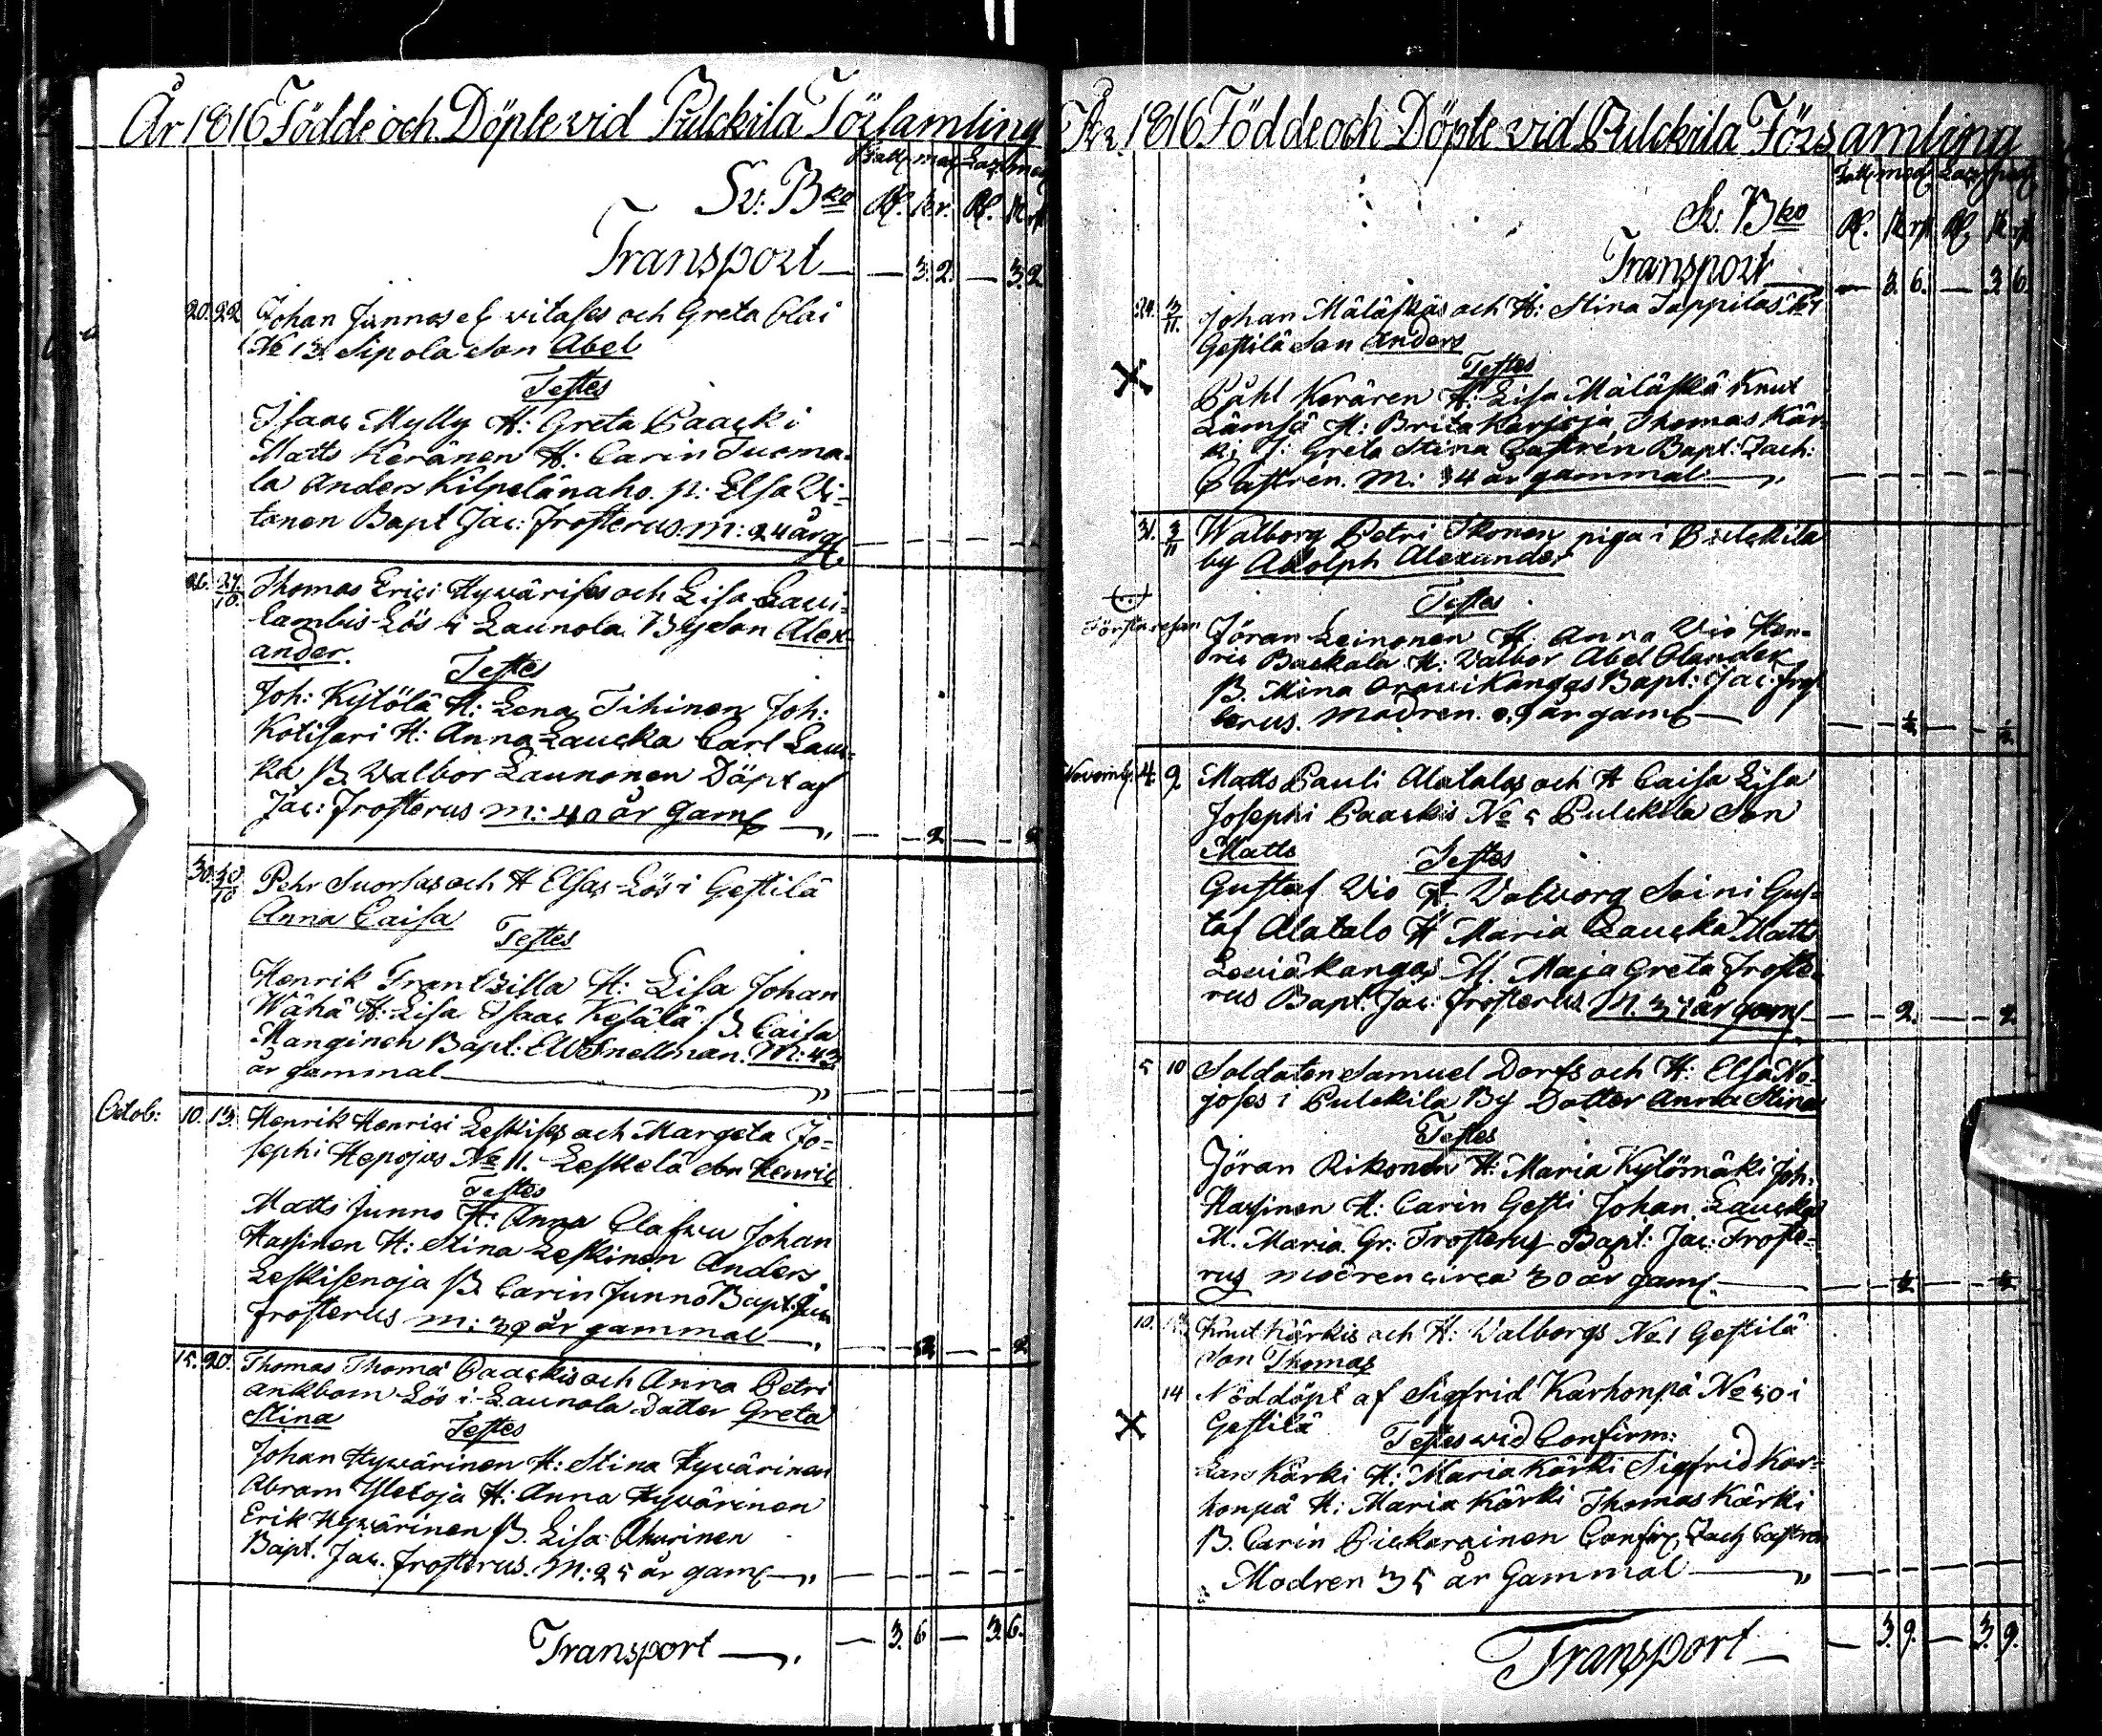 År 1816 Födde och Döpte vid Pulckila Församling
Sv: Bko Rf. k r. Rf. k rf
Transport — — 3. 2. — 3 2
20. 22 Johan Junnos och Greta Olai
No 13 Sipola Son Abel
Testes
Isaac Mylly H: Greta Paacki
Matts Keränen H: Carin Tuoma-
la Anders Kilpelänaho p: Elsa Vi-
tanen Bapt Jac: Frosterus. m: 24 år g
26. 27/10. Thomas Erici Hyvärises och Lisa Laui-
lambis Lös i Launola By Son Alex-
ander.
Testes
Joh: Kytölä H: Lena Tihinen Joh:
Kotisari H: Anna Laucka Carl Lauc-
ka B. Walbor Launonen Döpt af
Jac: Frosterus m: 40 år gam — — 2 — —
30. 30/10 Pehr Suorsas och H Elsas Lös i Gestilä
Anna Caisa
Testes
Henrik Frantzilla H: Lisa Johan
Wähä H: Lisa Isaac Kesälä B. Caisa
Manginen Bapt: EW Snellman. M: 43
år gammal
Octob: 10. 13. Henrik Henrici Leskises och Margeta Jo-
sephi Hepojas No 11. Leskelä Son Henric
Testes
Matts Junno H: Anna Johan
Hassinen H: Stina Leskinen Anders
Leskisenoja B. Carin Junno Bapt. Jac
Frosterus m: 39 år gammal — 2 — 2
15. 20. Thomas Thomæ Paackis och Anna Petri
ankbom Lös i Launola Dotter Greta
Stina
Testes
Johan Hyvärinen H: Stina Hyvärinen
Abram Yletoja H: Anna Hyvärinen
Erik Hyvärinen B. Lisa
Bapt. Jac. Frosterus. M: 25 år gam
Transport — — 3. 6 — 3. 6.
År 1816 Födde och Döpte vid Pulckila Församling
Sv. Bko Rf. k rf Rf. k rf
Transport — 3. 6. — 3. 6
24. 3/11. Johan Mäläskäs och H: Stina Tappilas No 1
Gestilä Son Anders
Testes
Påhl Kerären H: Lisa Mäläskä Knut
Lämsä H: Brita Karjoja Thomas Kär-
ki J: Greta Stina Castrén Bapt: Zach:
Castrén. M: 34 år gammal
31. 3/11 Walborg Petri Ikonen piga i Pulckila
by Adolph Alexander
Testes
Första resan Jöran Leinonen H. Anna Vio Hen-
ric Backala H: Valbor Abel Olander
B. Mina Oravikangas Bapt: Jac: Fros
terus. Modren år gam — — 1/2 — 1/2
Novemb. 4. 9 Matts Pauli Alatalos och H Caisa Lisa
Josephi Paackis No 5 Pulckila Son
Matts
Testes
Gustaf Vio H. Valborg Soini Gus-
taf Alatalo H Maria Laucka Matts
Leviäkangas M. Maja Greta Froste-
rus Bapt: Jac: Frosterus M. 37 år gam — — 2. — 2
5 10 Soldaten Samuel Dorfs och H: Elsa No-
joses i Pulckila By Dotter Anna Stina
Testes
Jöran Rikonen H: Maria Kytömäki Joh:
Hassinen H: Carin Gesti Johan Laucka
M. Maria Gr: Frosterus Bapt: Jac: Froste-
rus modren circa 30 år gam. — — 1/2 — 1/2
10. Knut Kärkis och H: Valborgs No 1 Gestilä
Son Thomas
14 Nöddöpt af Sigfrid Karhonpä No 30 i
Gestilä
Testes wid Confirm:
Lars Kärki H: Maria Kärki Sigfrid Kar-
honpä H: Maria Kärki Thomas Kärki
B. Carin Pickarainen Confir. Zach Castren
Modren 35 år Gammal
Transport — — 3. 9. — 3. 9.